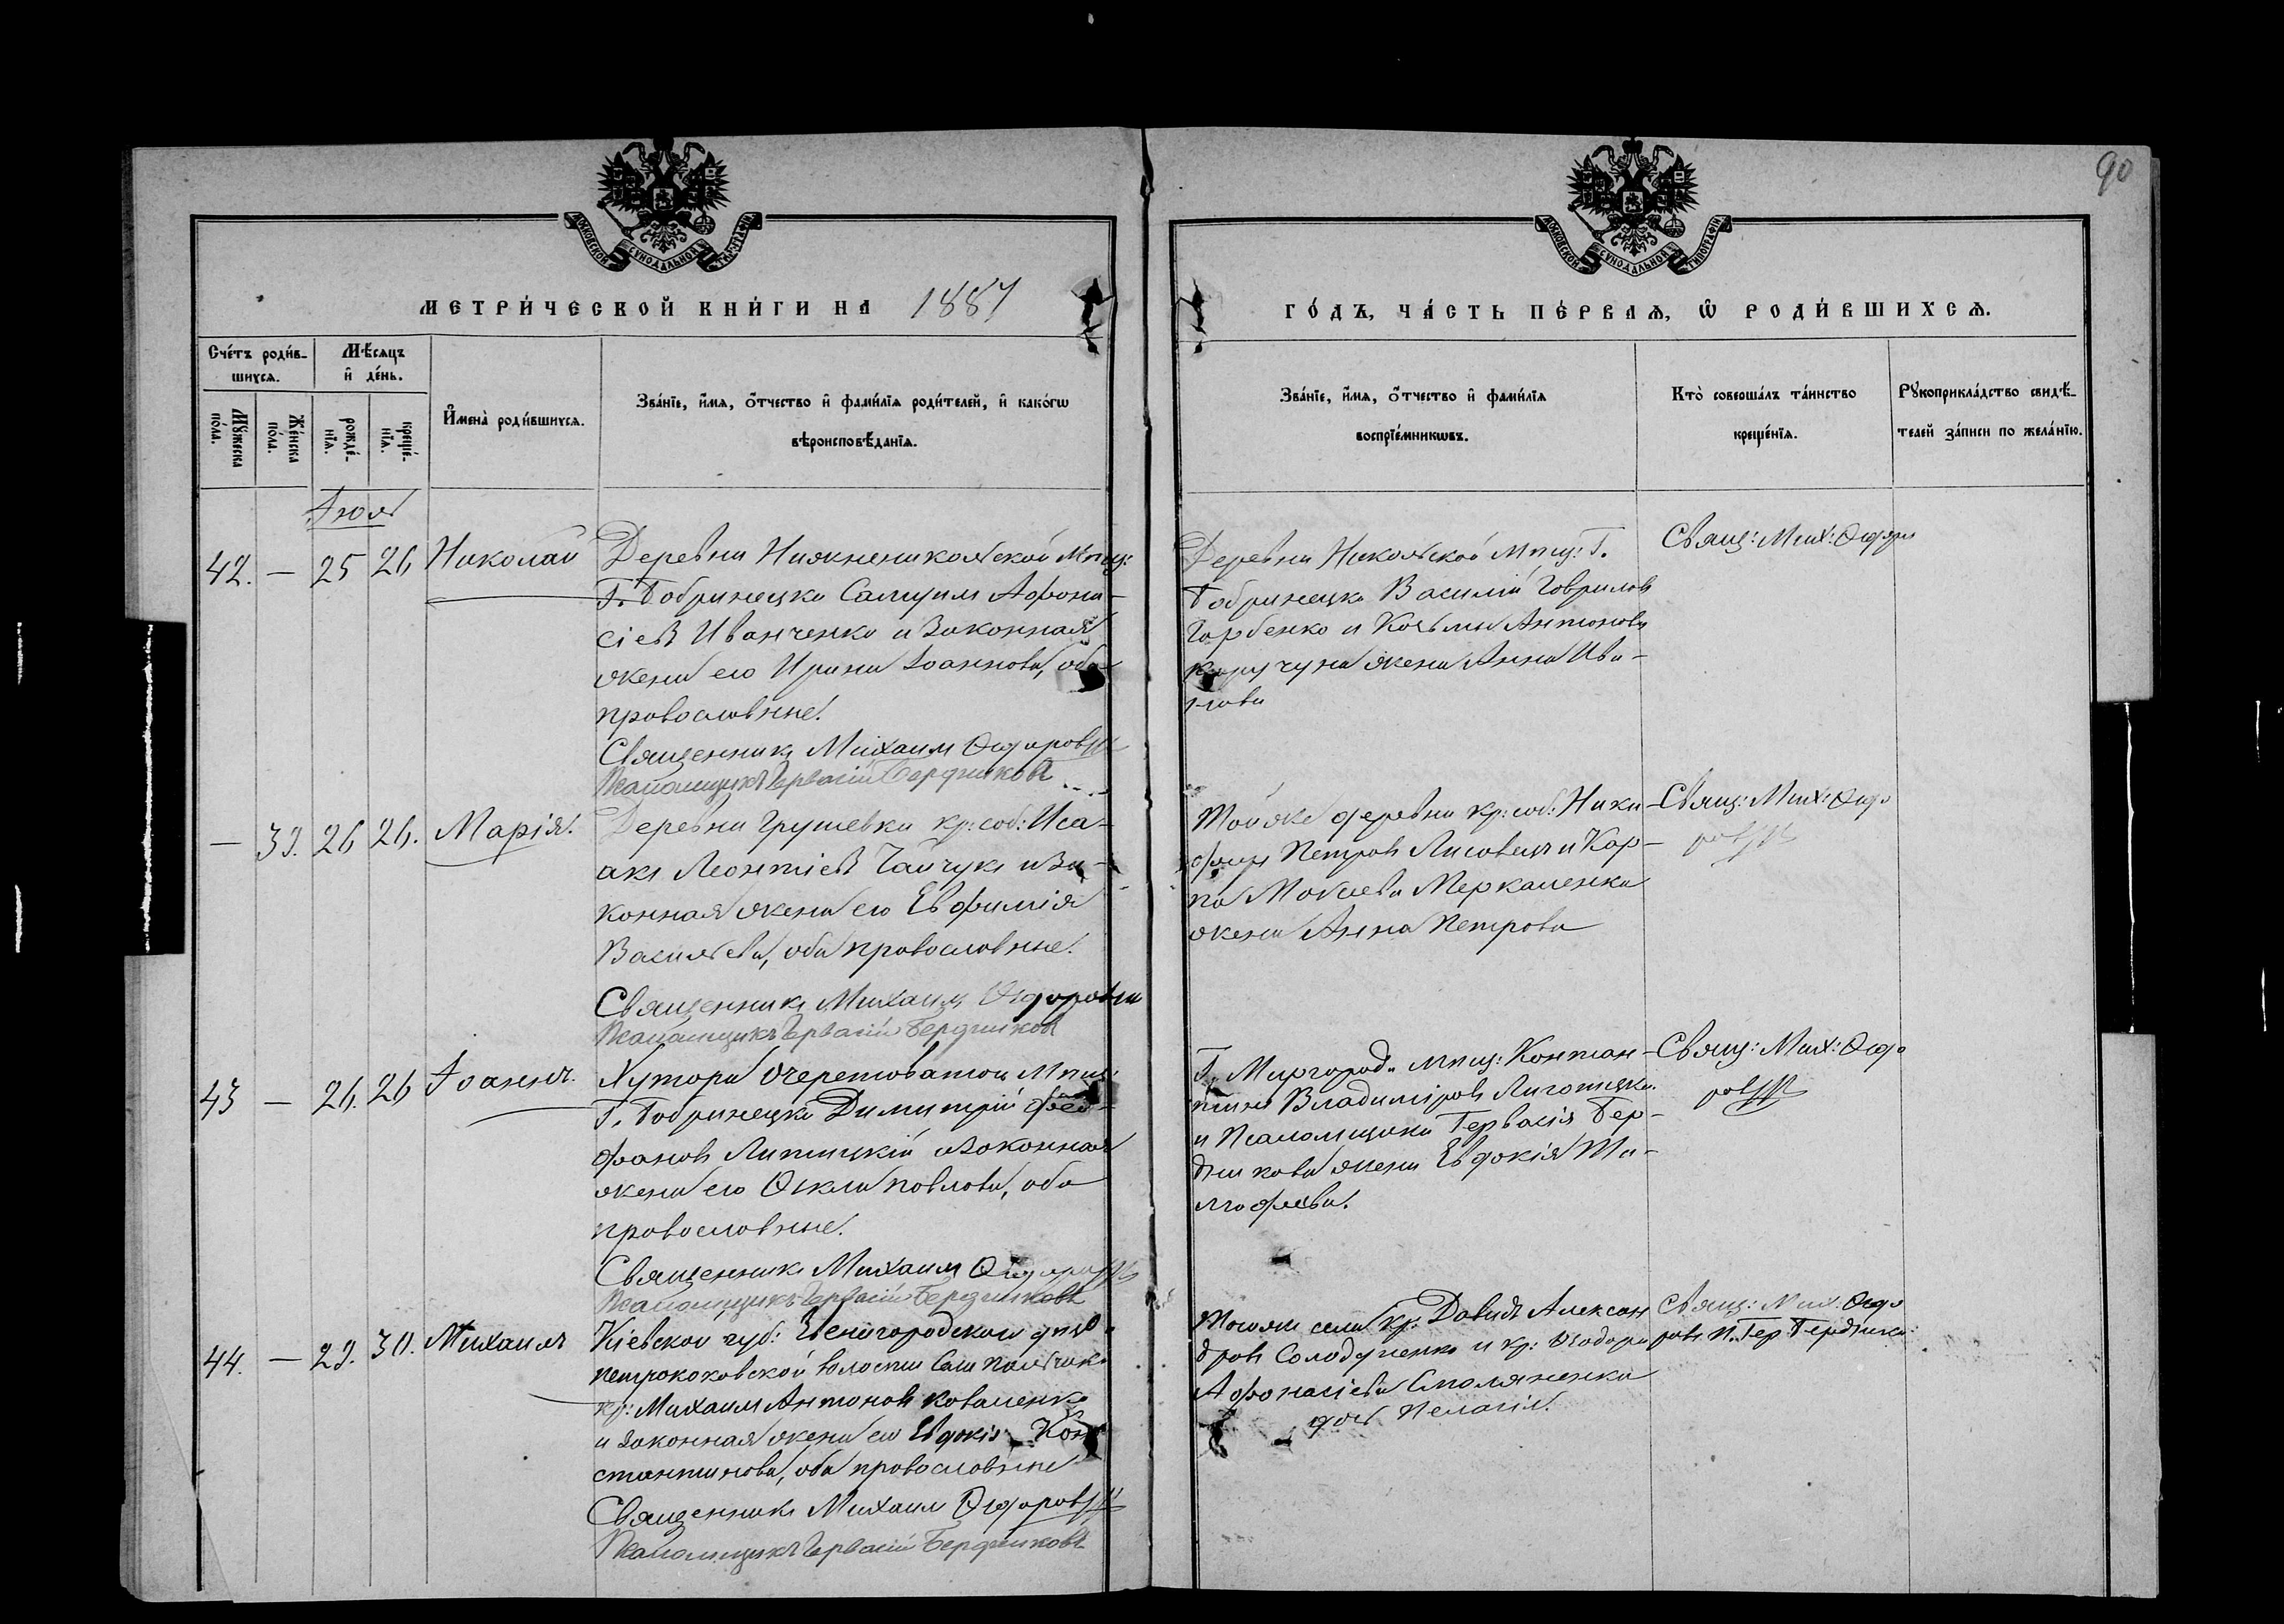 90
МОСКОВСКОЙ СѴНОДАЛЬНОЙ ТИПОГРАФІИ
МОСКОВСКОЙ СѴНОДАЛЬНОЙ ТИПОГРАФІИ
МЕТРИ́ЧЕСКОЙ КНИ́ГИ НА 1887
ГО́ДЪ, ЧА́СТЬ ПЕ́РВАѦ, Ѡ҆ РОДИ́ВШИХСѦ.
Сче́тъ роди́в-
шихсѧ.
Мѣ́сѧцъ
и҆ де́нь.
Мꙋ́жеска
по́ла.
Же́нска
по́ла.
рожде́-
нїѧ.
креще́-
нїѧ.
И҆мена̀ роди́вшихсѧ.
Зва́нїе, и҆́мѧ, ѻ҆́тчество и҆ фами́лїѧ роди́телей, и҆ како́гѡ
вѣроисповѣ́данїѧ.
Зва́нїе, и҆́мѧ, ѻ҆́тчество и҆ фами́лїѧ
воспрїе́мникѡвъ.
Кто̀ соверша́лъ та́инство
креще́нїѧ.
Рꙋкоприкла́дство свидѣ́-
телей за́писи по жела́нїю.
Іюля
42. — 25 26 Николай
Деревни Нижнениколской Мѣщ:
Г. Бобринецка Самуил Афона-
сіевъ Иванченко и Законная
жена его Ирина Іоаннова, оба
православные.
Священникъ Михаил Ѳедоров
Псаломщикъ Гервасій Бердниковъ
Деревни Николской мѣщ: Г.
Бобринецка Василій Гаврилов
Горбенко и Козьмы Антонова
жена Анна Ива-
нова
Свящ: Мих: Ѳедоров
— 39. 26 26. Марія.
Деревни Грушевки кр: соб: Иса-
акъ Леонтіевъ Чайчукъ и За-
конная жена его Евфимія
Василіева, оба православные.
Священникъ Михаилъ Ѳедоров
Псаломщикъ Гервасій Бердниковъ
Той же деревни кр: соб: Ники-
форъ Петровъ Лисовецъ и Кар-
па Моисеева Меркаленка
жена Анна Петрова
Свящ: Мих: Ѳедо
ров
43 — 26. 26 Іоаннъ.
Хутора Очеретоватой мѣщ:
Г. Бобринецка Димитрій Фео-
фановъ Липицкій и Законная
жена его Ѳекла Павлова, оба
православные.
Священникъ Михаилъ Ѳедоров
Псаломщикъ Гервасій Бердниковъ
Г. Миргорода мѣщ: Констан-
тинъ Владиміровъ
и Псаломщика Гервасія Бер-
дникова жена Евдокія Ти-
мофеева.
Свящ: Мих: Ѳедо
ров
44. — 29. 30. Михаилъ
Кіевской губ: Звенигородскаго уѣзда
волости Села
кр: Михаил Антоновъ Коваленко
и законная жена его Евдокія Кон
стантинова, оба православные
Священникъ Михаил Ѳедоров
Псаломщикъ Гервасій Бердниковъ
Тогоже села кр: Давидъ Алексан
дровъ Солодченко и кр: Ѳедора
Афонасіева Смоляненка
дочь Пелагія.
Свящ: Мих: Ѳедо
ровъ П. Гер. Бердник: